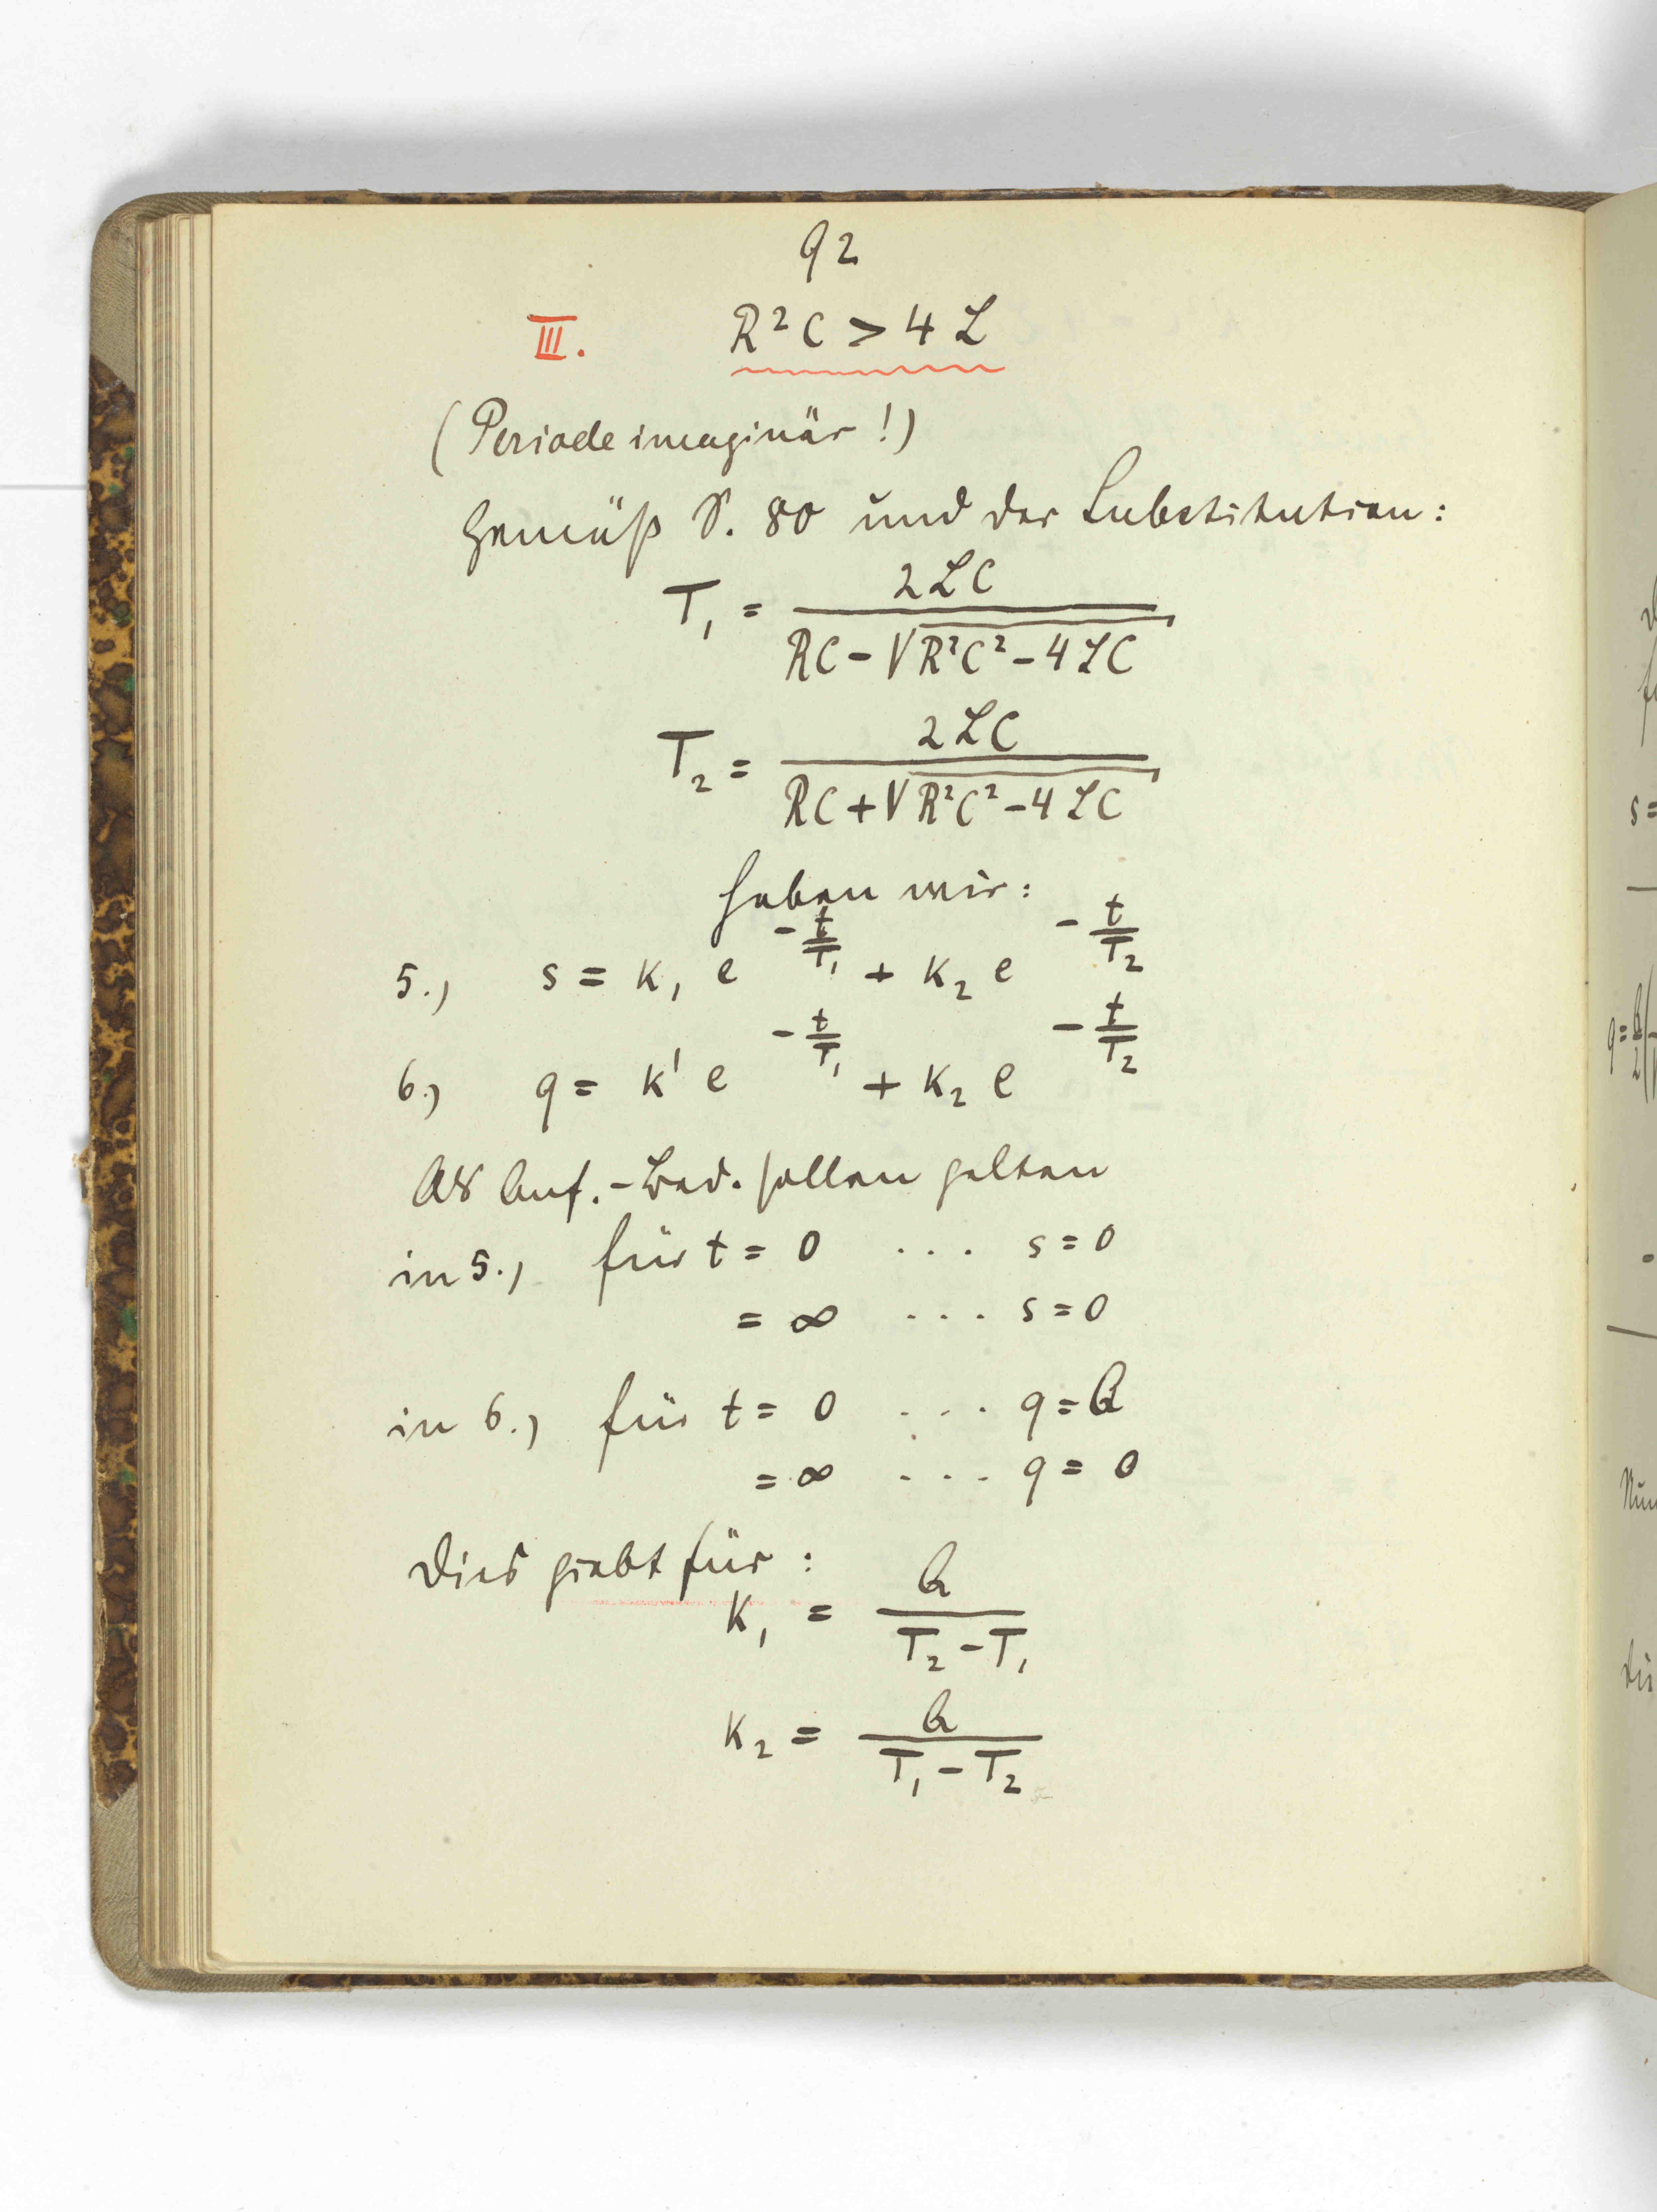 92
III. R²C > 4L
(Periode imaginär!)
Gemäß S. 80 und der Substitution:
T₁ = 2LC / (RC - √(R²C² - 4LC))
T₂ = 2LC / (RC + √(R²C² - 4LC))
haben wir:
5.) s = K₁ e^(-t/T₁) + K₂ e^(-t/T₂)
6.) q = K' e^(-t/T₁) + K₂ e^(-t/T₂)
Als Anf.-Bed. sollen gelten
in 5.) für t = 0 ... s = 0
= ∞ ... s = 0
in 6.) für t = 0 ... q = Q
= ∞ ... q = 0
Dies giebt für:
K₁ = Q / (T₂ - T₁)
K₂ = Q / (T₁ - T₂)
s =
Nun